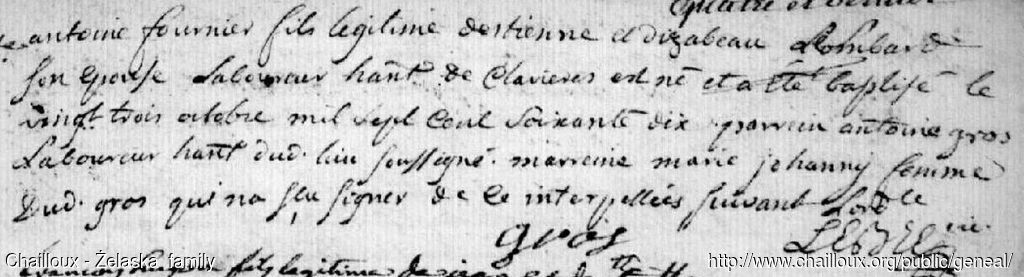 antoine fournier fils legitime destienne et dizabeau Lombard
son epouse Laboureur hant de Clavieres est né et a été baptisé le
vingt trois octobre mil sept cent soixante dix parrein antoine gros
Laboureur hant dud. lieu soussigné. marreine marie johanny femme
Dud. gros qui na sçu signer de ce interpellées suivant Lord ce
gros
fils legitime
Chailloux - Żelaska family
http://www.chailloux.org/public/geneal/